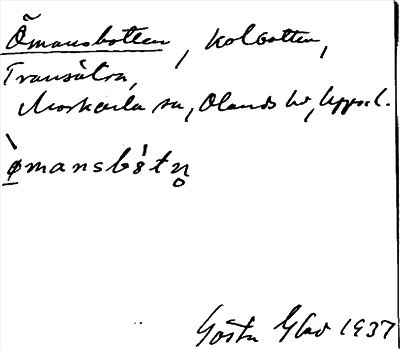 Õmansbotten, kolbotten,
Transätra,
Morkarla sn, Olands hd, Uppsl.
ø̱̀mansbòtn̥
Gösta Glad 1937